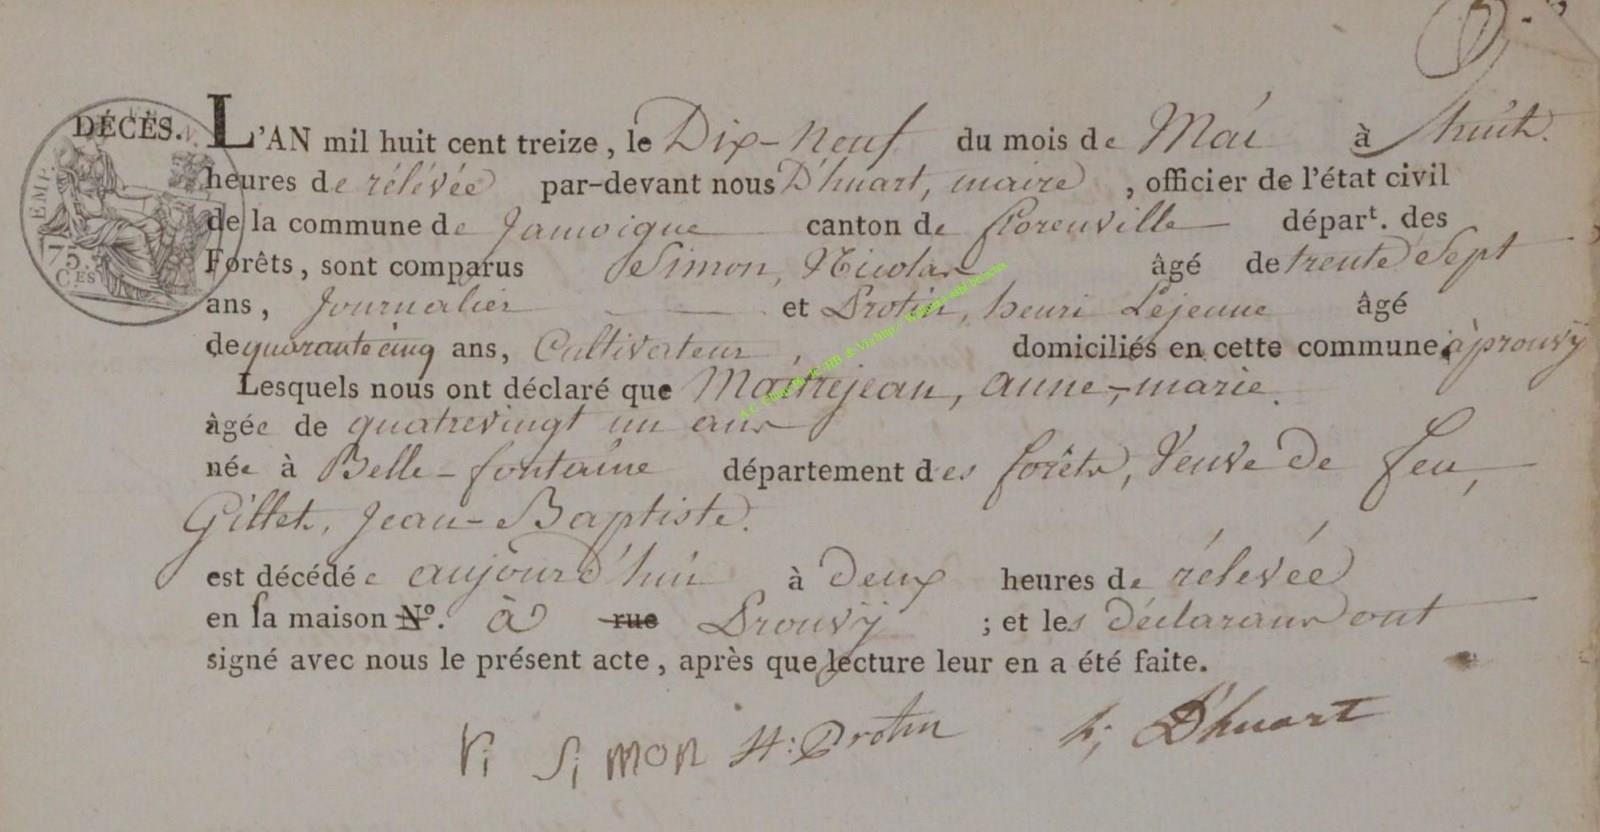 DÉCÈS. L'AN mil huit cent treize, le Dix-Neuf du mois de Mai à huit
heures de rélévée par-devant nous D'huart, maire, officier de l'état civil
de la commune de Jamoigne canton de florenville départ. des
Forêts, sont comparus Simon, Nicolas âgé de trente Sept
ans, Journalier et Protin, henri Lejeune âgé
de quarante cinq ans, Cultivateur, domiciliés en cette commune à prouvÿ
Lesquels nous ont déclaré que Maitrejean, anne-marie.
âgée de quatrevingt un ans
née à Belle-fontaine département des forêts, Veuve de feu,
Gillet, Jean-Baptiste.
est décédée aujourd'hui à deux heures de rélevée
en sa maison N°. à rue Prouvÿ ; et les déclarans ont
signé avec nous le présent acte, après que lecture leur en a été faite.
Si mon H: Protin h; D'huart
EMP.
75.
C.ES